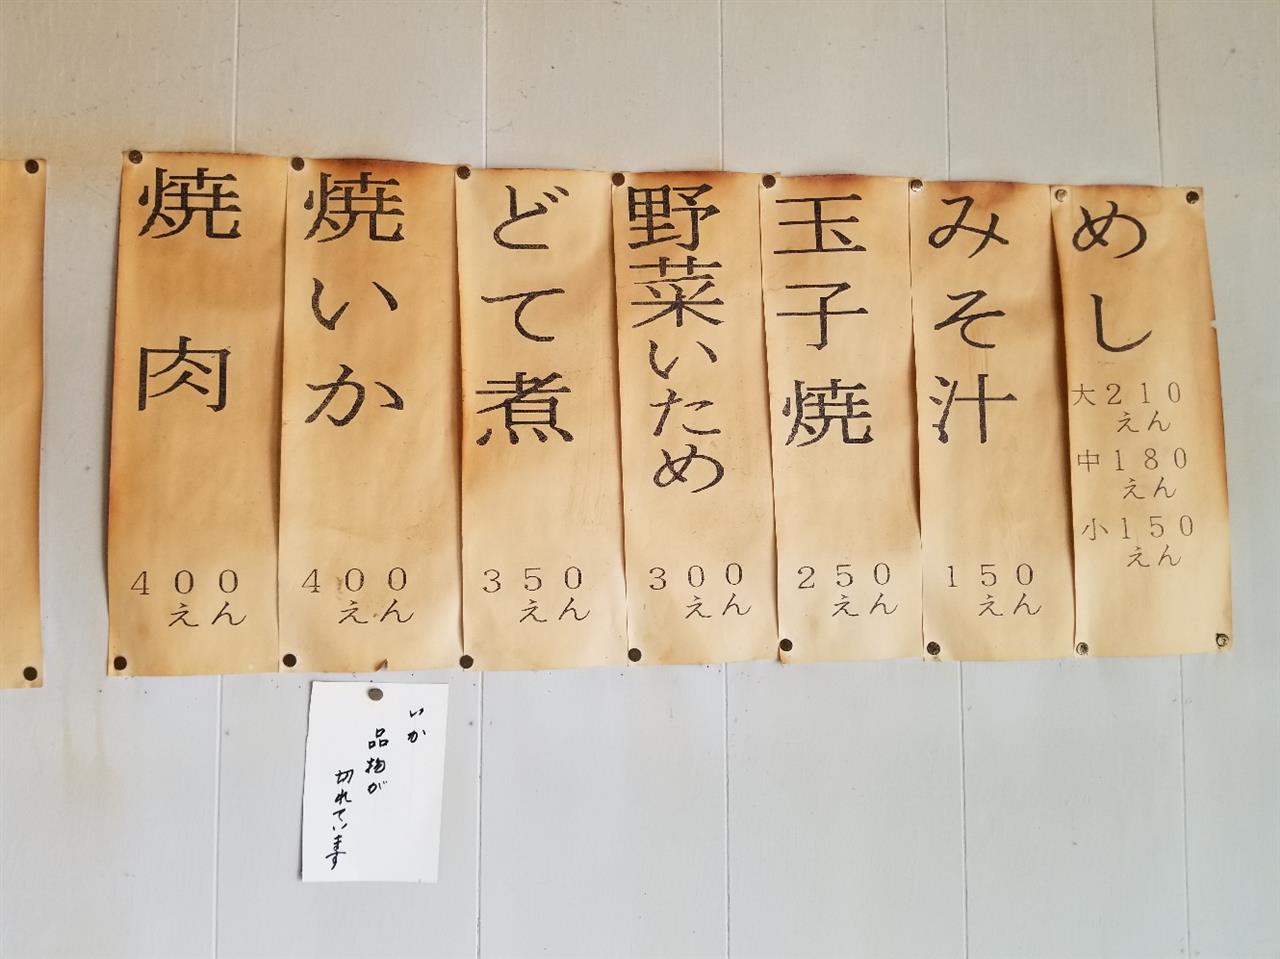 めし
大210
えん
中180
えん
小150
えん
みそ汁
150
えん
玉子焼
250
えん
野菜いため
300
えん
どて煮
350
えん
焼いか
400
えん
焼肉
400
えん
いか
品物が
切れています